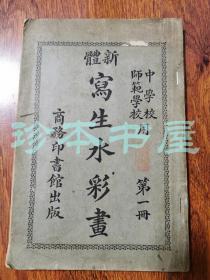 中學校
師範學校
用
第一冊
新體
寫生水彩畫
商務印書館出版
珍本书屋